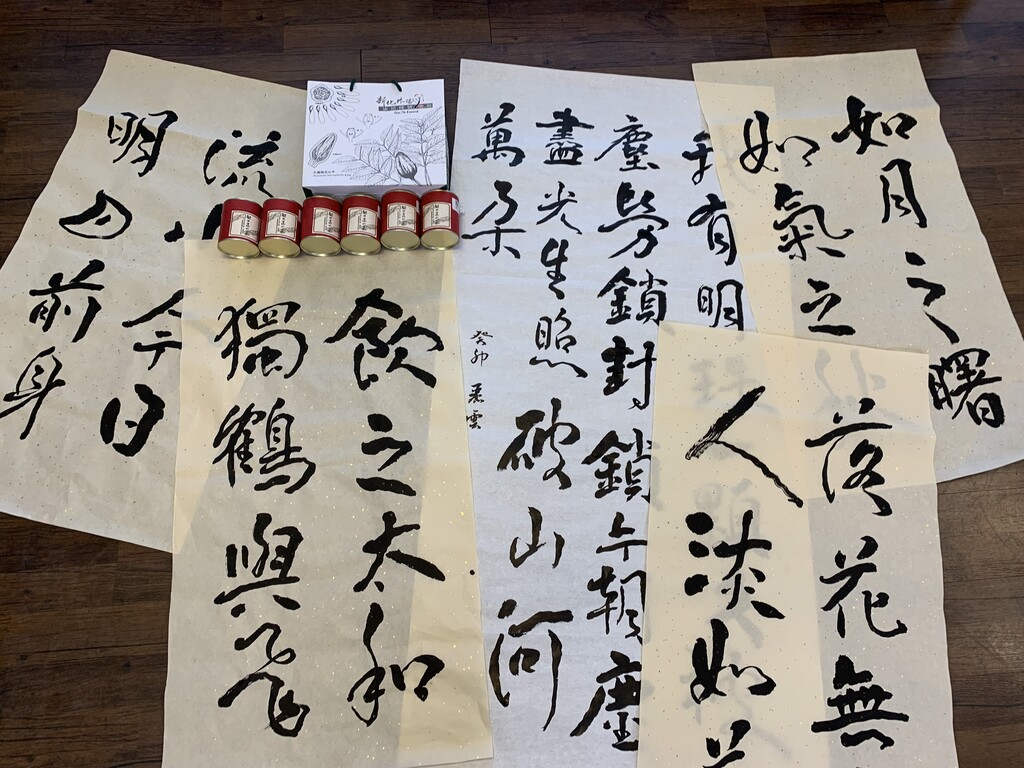 如月之曙
如氣之
有明
塵勞鎖封鎖今朝塵
盡光生照破山河
萬朵
癸卯
雲
流
今日
明月前身
飲之太和
獨鶴與飛
落花無
人淡如